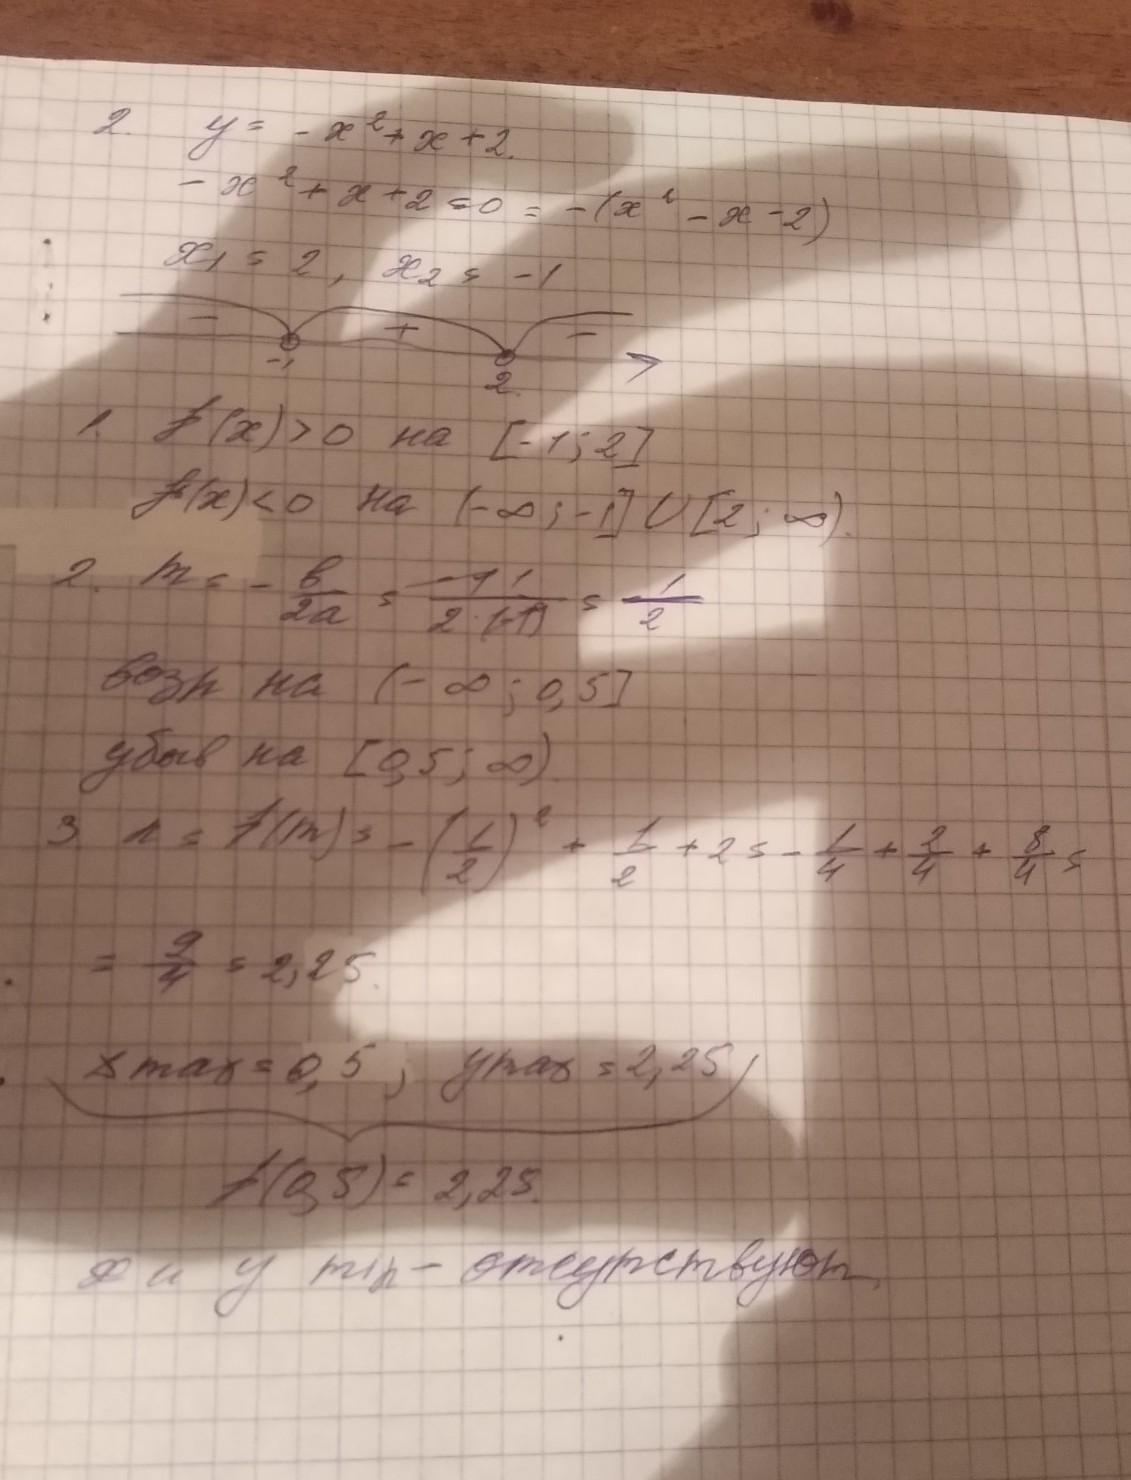 2. y = -x² + x + 2.
-x² + x + 2 = 0 = -(x² - x - 2)
x₁ = 2, x₂ = -1
- + -
-1 2
1. f(x) > 0 на [-1; 2]
f(x) < 0 на (-∞; -1] ∪ [2; ∞).
2. m = - в/2a = -1/2·(-1) = 1/2
возр на (-∞; 0,5]
убыв на [0,5; ∞)
3 n = f(m) = -(1/2)² + 1/2 + 2 = -1/4 + 2/4 + 8/4 =
= 9/4 = 2,25.
x max = 0,5; y max = 2,25
f(0,5) = 2,25.
x и y min - отсутствуют